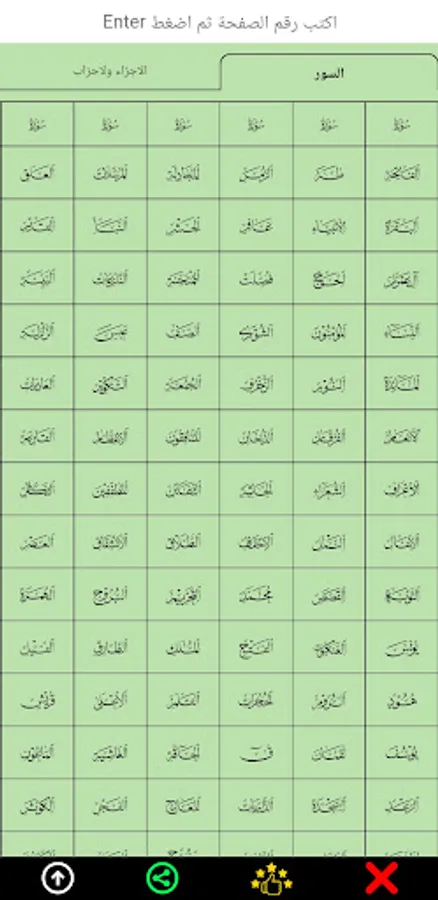 اكتب رقم الصفحة ثم اضغط Enter
السور الاجزاء ولاحزاب
سورة سورة سورة سورة سورة سورة
الفاتحة طه الزمر المجادلة المرسلات العلق
البقرة الأنبياء غافر الحشر النبأ القدر
آل عمران الحج فصلت الممتحنة النازعات البينة
النساء المؤمنون الشورى الصف عبس الزلزلة
المائدة النور الزخرف الجمعة التكوير العاديات
الأنعام الفرقان الدخان المنافقون الانفطار القارعة
الأعراف الشعراء الجاثية التغابن المطففين التكاثر
الأنفال النمل الأحقاف الطلاق الانشقاق العصر
التوبة القصص محمد التحريم البروج الهمزة
يونس العنكبوت الفتح الملك الطارق الفيل
هود الروم الحجرات القلم الأعلى قريش
يوسف لقمان ق الحاقة الغاشية الماعون
الرعد السجدة الذاريات المعارج الفجر الكوثر